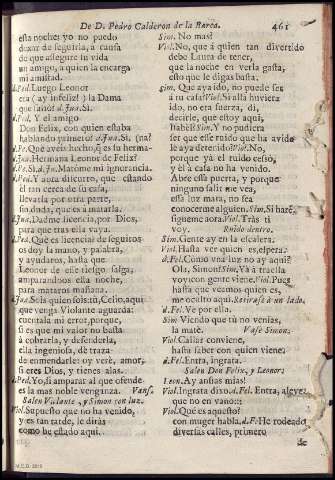 De D. Pedro Calderon de la Barca. 461
esta noche; yo no puedo
dexar de seguirla, a causa
de que assegure su vida
un amigo, a quien la encarga
mi amistad.
d.Ped. Luego Leonor
era (ay infeliz!) la Dama
que d.Jua. Si.
d.Ped. Y el amigo
Don Felix, con quien estaba
hablando d.Jua. Si,
d.Pe. Què aveis hecho, es su herma-
d.Jua. Hermana Leonor de Felix?
d.Pe. Si. d.Jua. Matòme mi ignorancia.
d.Ped. Y aora discurro, que estando
èl tan cerca de su casa,
llevarla por otra parte,
sin duda, que es a matarla.
d.Jua. Dadme licencia, por Dios,
para que tras ella vaya.
d.Ped. Què es licencia? de seguiros
os doy la mano, y palabra,
y ayudaros, hasta que
Leonor de esse riesgo salga,
amparandoos esta noche,
para mataros mañana.
d.Jua. Sois quien sois: tù, Celio, aqui
que venga Violante aguarda:
cuentala mi error, porque,
si es que mi valor no basta
à cobrarla, y defenderla,
ella ingeniosa, dè traza
de enmendarle: oy verè, amor,
si eres Dios, y tienes alas.
d.Ped. Yo, si amparar al que ofende
es la mas noble venganza. Vans.
Salen Violante, y Simon con luz.
Viol. Supuesto que no ha venido,
y es tan tarde, le diràs
como he estado aqui.
Sim. No mas?
Viol. No, que à quien tan divertido
debe Laura de tener,
que la noche en verla gasta,
esto que le digas basta.
Sim. Que aya ido, no puede ser
à tu casa? Viol. Si allà huviera
ido, no era fuerza, di,
decirle, que estoy aqui,
Isabel? Sim. Y no pudiera
ser que esse ruido que ha avido
le aya detenido? Viol. No,
porque yà el ruido cessò,
y èl à casa no ha venido.
Abre essa puerta, y porque
ninguno salir me vea,
essa luz mata, no sea
conocerme alguien. Sim. Si harè,
sigueme aora. Viol. Tràs ti
voy. Ruido dentro.
Sim. Gente ay en la escalera.
Viol. Hasta ver quien es, espera.
d.Fel. Como una luz no ay aqui?
Ola, Simon? Sim. Yà à traella
voy: con gente viene. Viol. Pues
hasta que veamos quien es,
me oculto aqui. Retirase à un lado.
d.Fel. Ve por ella.
Sim. Viendo que tù no venias,
la matè. Vase Simon.
Viol. Callar conviene,
hasta saber con quien viene.
d.Fel. Entra, ingrata.
Salen Don Felix, y Leonor.
Leon. Ay ansias mias!
Viol. Ingrata dixo. d.Fel. Entra, aleve,
que no en vano::
Viol. Què es aquesto?
con muger habla. d.F. He rodeado
diversas calles, primero